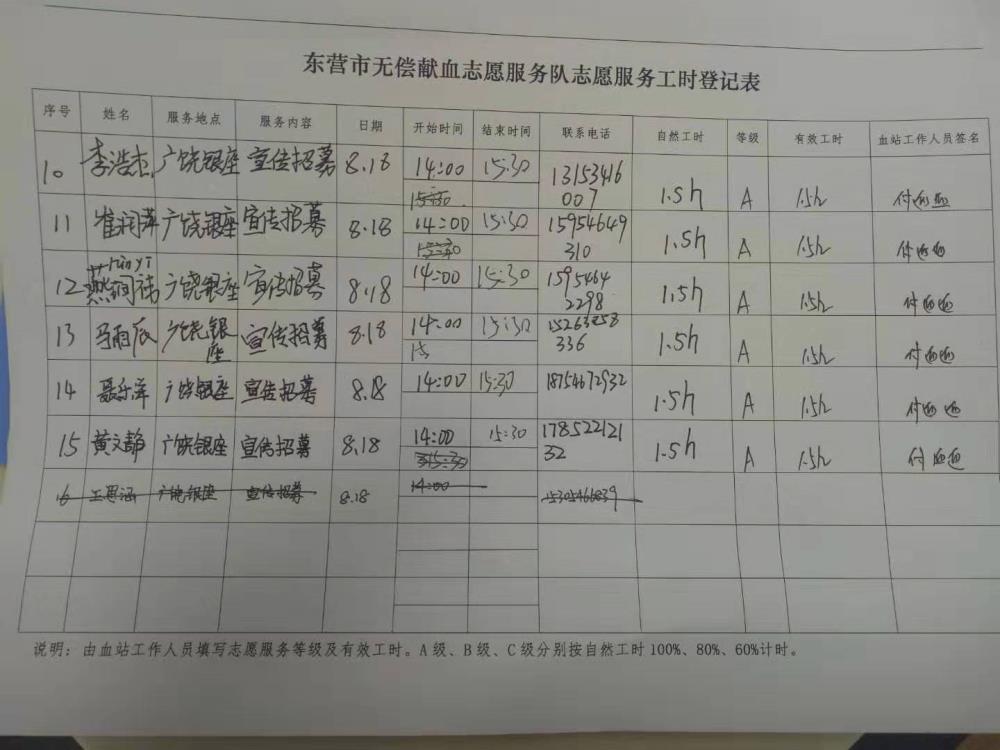 东营市无偿献血志愿服务队志愿服务工时登记表
序号 姓名 服务地点 服务内容 日期 开始时间 结束时间 联系电话 自然工时 等级 有效工时 血站工作人员签名
10 李浩杰 广饶银座 宣传招募 8.18 14:00 15:30 13153416 1.5h A 1.5h
15:30 007
11 崔润萍 广饶银座 宣传招募 8.18 14:00 15:30 15954649 1.5h A 1.5h
310
12 燕润祎 广饶银座 宣传招募 8.18 14:00 15:30 1595464 1.5h A 1.5h
2298
13 马雨辰 广饶银 宣传招募 8.18 14:00 15:30 1.5h A 1.5h
座 15 336
14 聂乐洋 广饶银座 宣传招募 8.18 14:00 15:30 18754672932 1.5h A 1.5h
15 黄文静 广饶银座 宣传招募 8.18 14:00 15:30 178522121 1.5h A 1.5h
315:30 32
16 广饶银座 宣传招募 8.18 14:00 15305466839
说明：由血站工作人员填写志愿服务等级及有效工时。A级、B级、C级分别按自然工时100%、80%、60%计时。